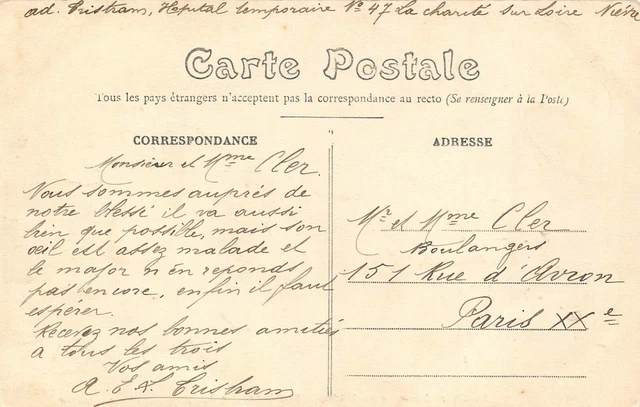 ad. Tristram, Hôpital temporaire N° 47 La charité sur Loire Nièvre
Carte Postale
Tous les pays étrangers n'acceptent pas la correspondance au recto (Se renseigner à la Poste)
CORRESPONDANCE
Monsieur et Mme Cler.
Nous sommes auprés de
notre blessé il va aussi
bien que possible, mais son
oeil est assez malade et
le major n'en reponds
pas encore, enfin il faut
espérer.
Recevez nos bonnes amitiés
a tous les trois
Vos amis
A. E. A. Tristram
ADRESSE
Mr et Mme Cler
Boulangers
151 Rue d'Avron
Paris XXe